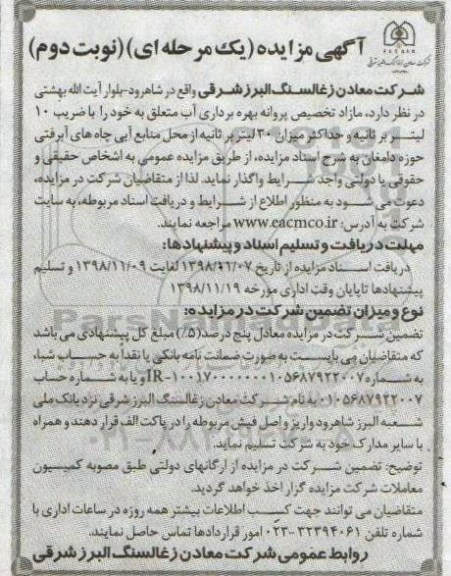 آگهی مزایده (یک مرحله ای) (نوبت دوم)
شرکت معادن زغالسنگ البرز شرقی واقع در شاهرود-بلوار آیت الله بهشتی
در نظر دارد، مازاد تخصیص پروانه بهره برداری آب متعلق به خود را با ضریب ۱۰
لیتر بر ثانیه و حداکثر میزان ۳۰ لیتر بر ثانیه از محل منابع آبی چاه های آبرفتی
حوزه دامغان به شرح اسناد مزایده، از طریق مزایده عمومی به اشخاص حقیقی و
حقوقی یا دولتی واجد شرایط واگذار نماید. لذا از متقاضیان شرکت در مزایده،
دعوت می شود به منظور اطلاع از شرایط و دریافت اسناد مربوطه، به سایت
شرکت به آدرس: www.eacmco.ir مراجعه نمایند.
مهلت دریافت و تسلیم اسناد و پیشنهادها:
دریافت اسناد مزایده از تاریخ ۱۳۹۸/۱۱/۰۷ لغایت ۱۳۹۸/۱۱/۰۹ و تسلیم
پیشنهادها تا پایان وقت اداری مورخه ۱۳۹۸/۱۱/۱۹
نوع و میزان تضمین شرکت در مزایده:
تضمین شرکت در مزایده معادل پنج درصد (۵٪) مبلغ کل پیشنهادی می باشد
که متقاضیان می بایست به صورت ضمانت نامه بانکی یا نقداً به حساب شبا،
به شماره IR-۱۰۰۱۷۰۰۰۰۰۰۰۱۰۵۶۸۷۹۲۲۰۰۷ و یا به شماره حساب
۰۱۰۵۶۸۷۹۲۲۰۰۷ به نام شرکت معادن زغالسنگ البرز شرقی نزد بانک ملی
شعبه البرز شاهرود واریز و اصل فیش مربوطه را در پاکت الف قرار دهند و همراه
با سایر مدارک خود به شرکت تسلیم نماید.
توضیح: تضمین شرکت در مزایده از ارگانهای دولتی طبق مصوبه کمیسیون
معاملات شرکت مزایده گزار اخذ خواهد گردید.
متقاضیان می توانند جهت کسب اطلاعات بیشتر همه روزه در ساعات اداری با
شماره تلفن ۳۲۳۹۴۰۶۱-۰۲۳ امور قراردادها تماس حاصل نمایند.
روابط عمومی شرکت معادن زغالسنگ البرز شرقی